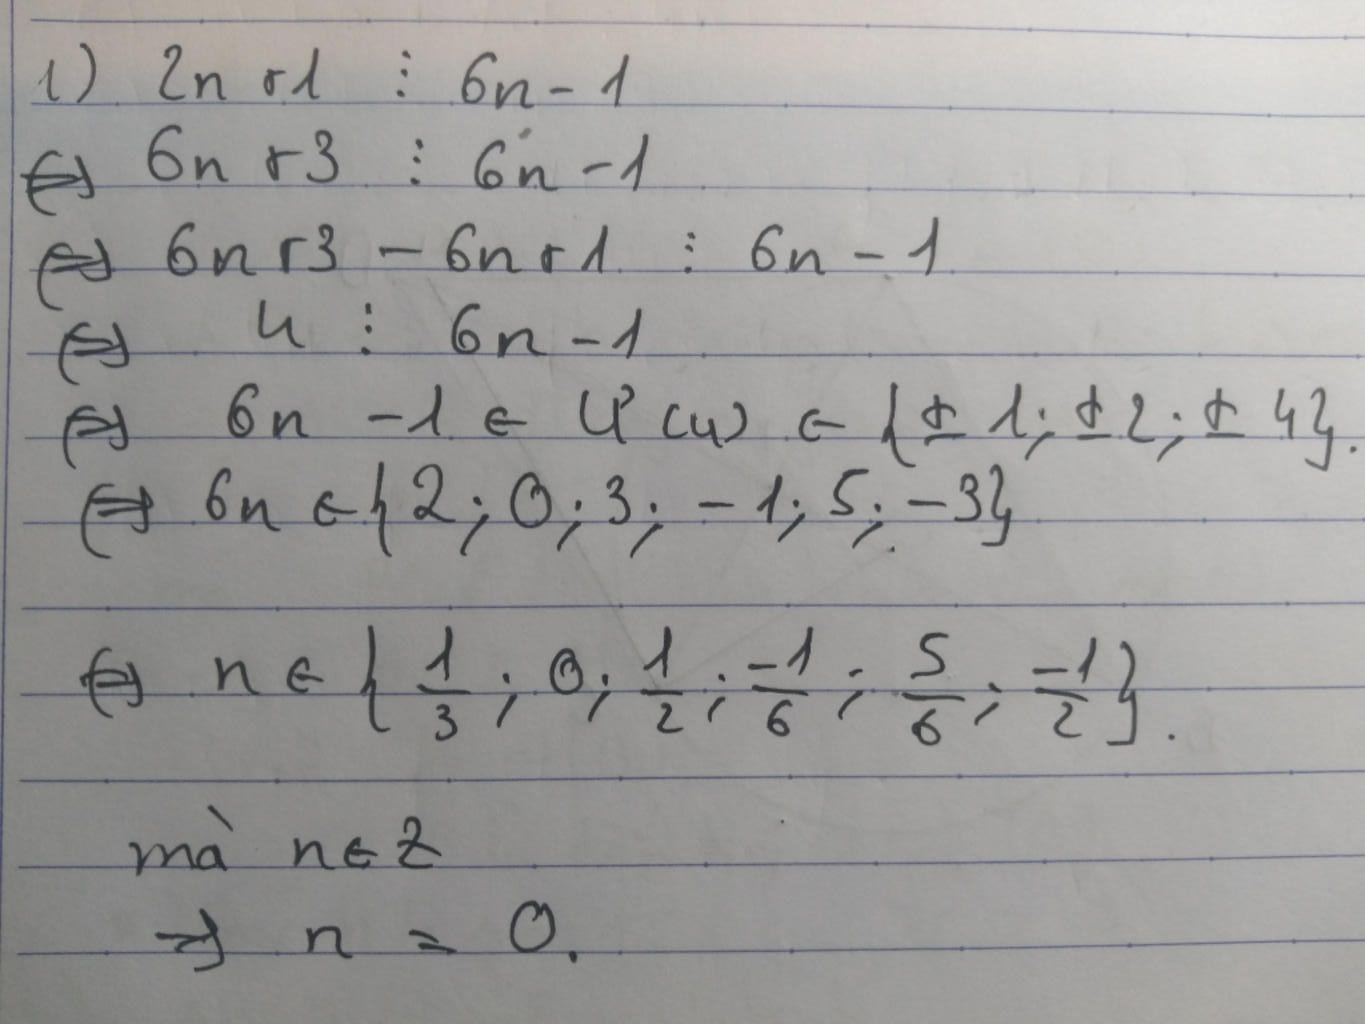 1) 2n+1 ⋮ 6n-1
⇔ 6n+3 ⋮ 6n-1
⇔ 6n+3-6n+1 ⋮ 6n-1
⇔ 4 ⋮ 6n-1
⇔ 6n-1 ∈ Ư(4) ∈ {±1; ±2; ±4}.
⇔ 6n ∈ {2; 0; 3; -1; 5; -3}
⇔ n ∈ {1/3; 0; 1/2; -1/6; 5/6; -1/2}.
mà n ∈ Z
⇒ n = 0.